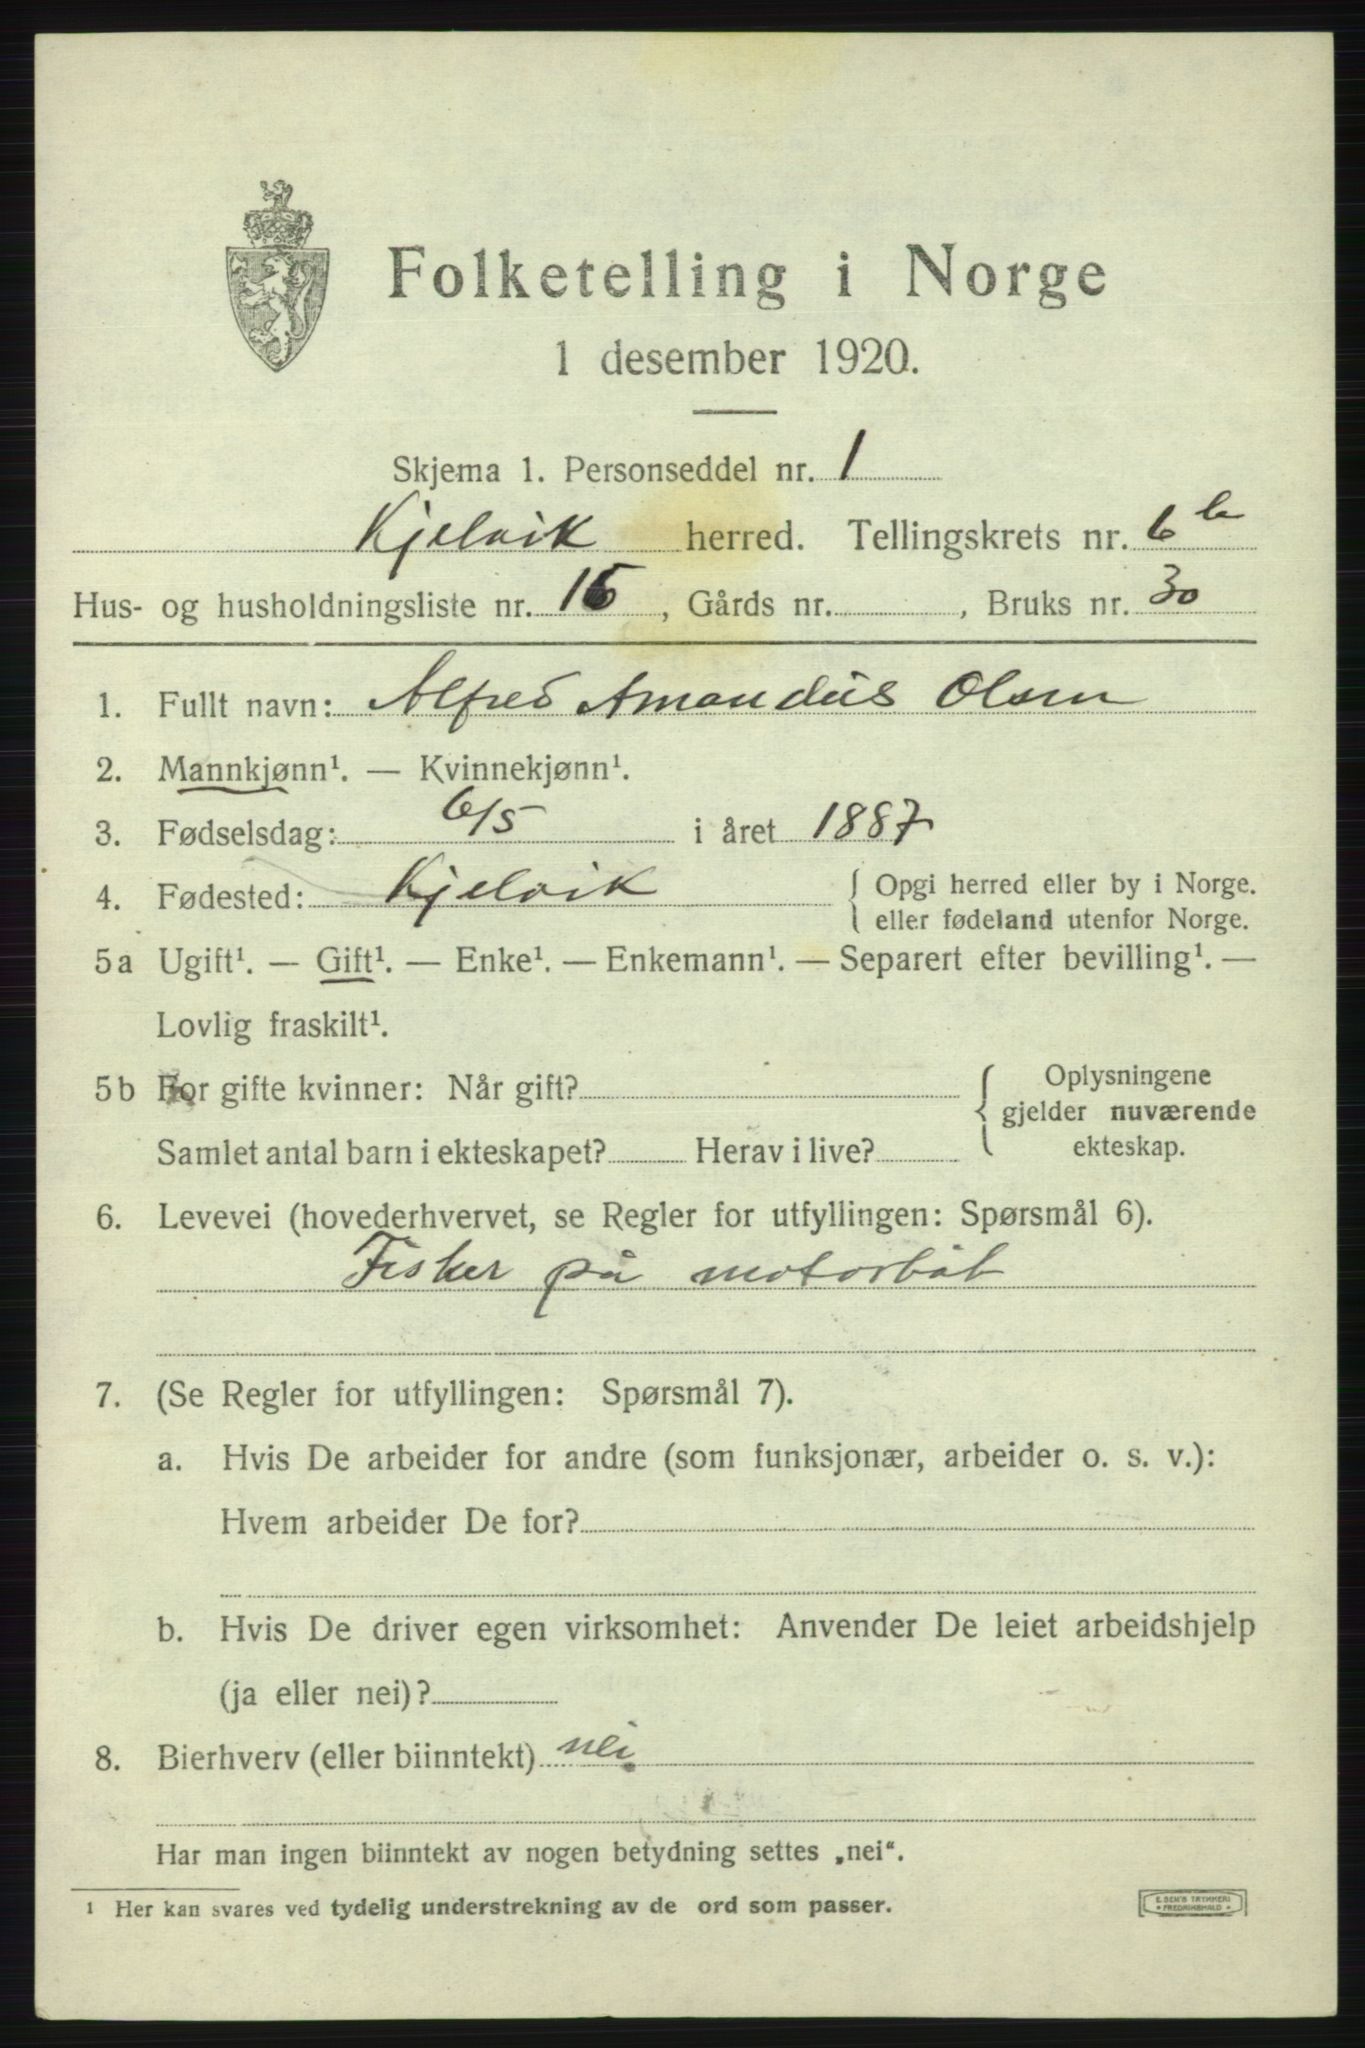 Folketelling i Norge
1 desember 1920.
Skjema 1. Personseddel nr. 1
Kjelvik herred. Tellingskrets nr. 6b
Hus- og husholdningsliste nr. 16, Gårds nr. , Bruks nr. 30
1. Fullt navn: Alfred Amandus Olsen
2. Mannkjønn¹. — Kvinnekjønn¹.
3. Fødselsdag: 6/5 i året 1887
4. Fødested: Kjelvik { Opgi herred eller by i Norge.
eller fødeland utenfor Norge.
5a Ugift¹. — Gift¹. — Enke¹. — Enkemann¹. — Separert efter bevilling¹. —
Lovlig fraskilt¹.
5b For gifte kvinner: Når gift? { Oplysningene
gjelder nuværende
ekteskap.
Samlet antal barn i ekteskapet? Herav i live?
6. Levevei (hovederhvervet, se Regler for utfyllingen: Spørsmål 6).
Fisker på motorbåt
7. (Se Regler for utfyllingen: Spørsmål 7).
a. Hvis De arbeider for andre (som funksjonær, arbeider o. s. v.):
Hvem arbeider De for?
b. Hvis De driver egen virksomhet: Anvender De leiet arbeidshjelp
(ja eller nei)?
8. Bierhverv (eller biinntekt) nei.
Har man ingen biinntekt av nogen betydning settes „nei“.
¹ Her kan svares ved tydelig understrekning av de ord som passer.
E. SEM'S TRYKKERI
• FREDRIKSHALD •